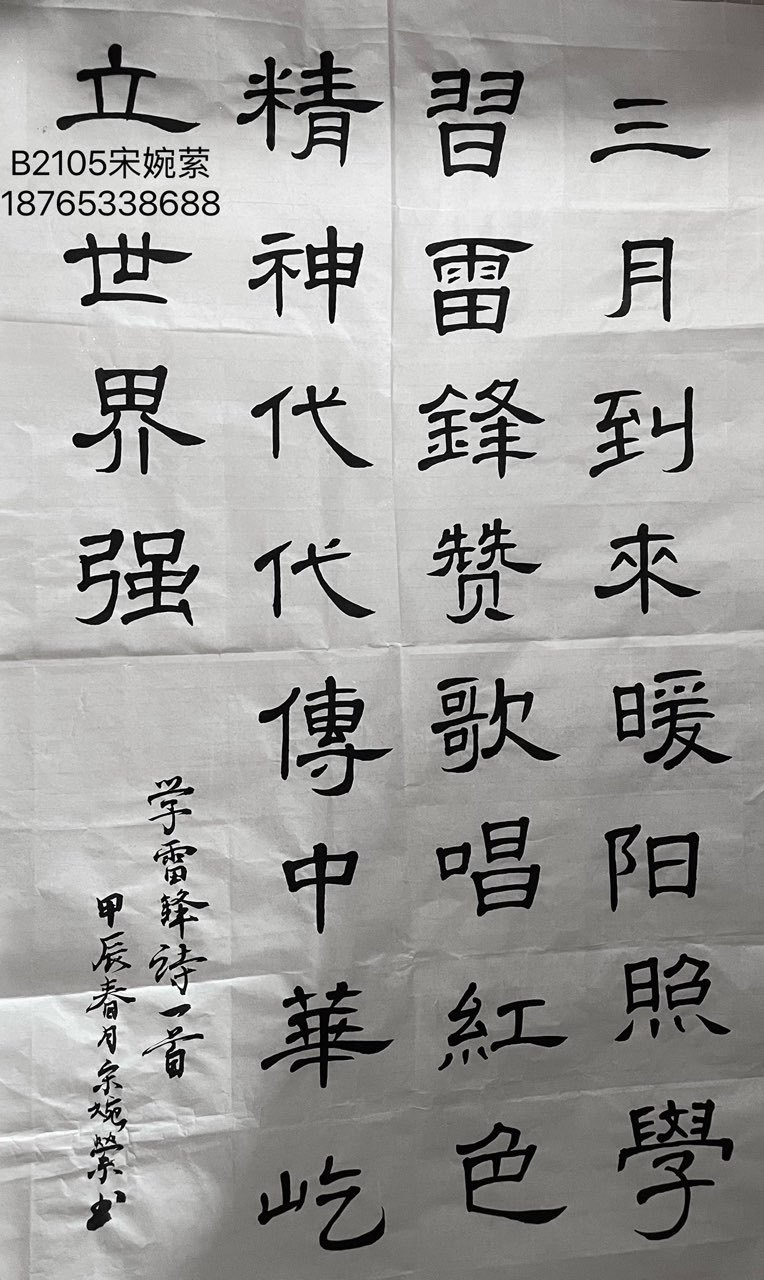 三月到來暖阳照學
習雷鋒赞歌唱紅色
精神代代傳中華屹
立世界强
学雷鋒诗一首
甲辰春月宋婉縈书
B2105宋婉萦
18765338688